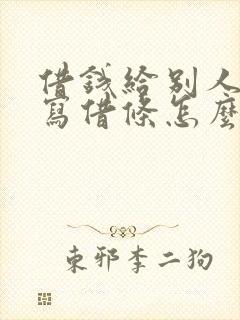 借錢給別人
寫借條怎麼
東邪李二狗